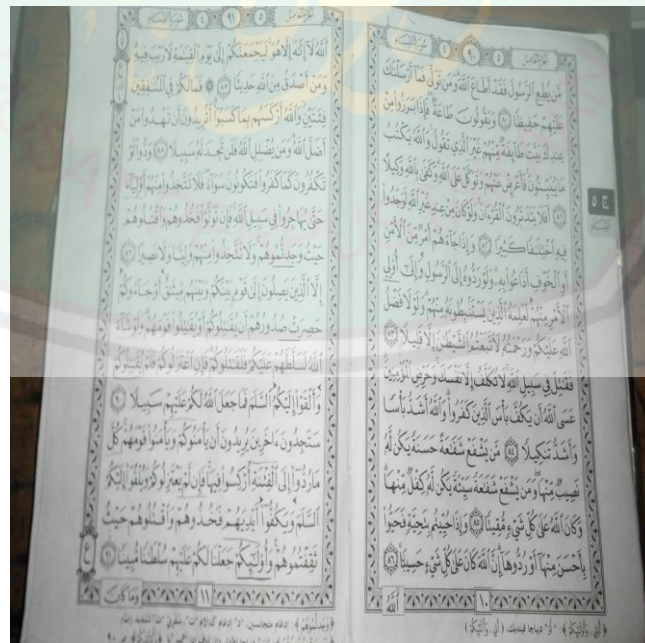 سُورَةُ النِّسَاءِ ٤
٩٠
٥
مَّن يُطِعِ الرَّسُولَ فَقَدْ أَطَاعَ اللَّهَ وَمَن تَوَلَّىٰ فَمَا أَرْسَلْنَاكَ
عَلَيْهِمْ حَفِيظًا ٨٠ وَيَقُولُونَ طَاعَةٌ فَإِذَا بَرَزُوا مِنْ
عِندِكَ بَيَّتَ طَائِفَةٌ مِّنْهُمْ غَيْرَ الَّذِي تَقُولُ وَاللَّهُ يَكْتُبُ
مَا يُبَيِّتُونَ فَأَعْرِضْ عَنْهُمْ وَتَوَكَّلْ عَلَى اللَّهِ وَكَفَىٰ بِاللَّهِ وَكِيلًا
٨١ أَفَلَا يَتَدَبَّرُونَ الْقُرْءَانَ وَلَوْ كَانَ مِنْ عِندِ غَيْرِ اللَّهِ لَوَجَدُوا
فِيهِ اخْتِلَافًا كَثِيرًا ٨٢ وَإِذَا جَاءَهُمْ أَمْرٌ مِّنَ الْأَمْنِ
أَوِ الْخَوْفِ أَذَاعُوا بِهِ وَلَوْ رَدُّوهُ إِلَى الرَّسُولِ وَإِلَىٰ أُولِي
الْأَمْرِ مِنْهُمْ لَعَلِمَهُ الَّذِينَ يَسْتَنبِطُونَهُ مِنْهُمْ وَلَوْلَا فَضْلُ
اللَّهِ عَلَيْكُمْ وَرَحْمَتُهُ لَاتَّبَعْتُمُ الشَّيْطَانَ إِلَّا قَلِيلًا ٨٣
فَقَاتِلْ فِي سَبِيلِ اللَّهِ لَا تُكَلَّفُ إِلَّا نَفْسَكَ وَحَرِّضِ الْمُؤْمِنِينَ
عَسَى اللَّهُ أَن يَكُفَّ بَأْسَ الَّذِينَ كَفَرُوا وَاللَّهُ أَشَدُّ بَأْسًا
وَأَشَدُّ تَنكِيلًا ٨٤ مَّن يَشْفَعْ شَفَاعَةً حَسَنَةً يَكُن لَّهُ
نَصِيبٌ مِّنْهَا وَمَن يَشْفَعْ شَفَاعَةً سَيِّئَةً يَكُن لَّهُ كِفْلٌ مِّنْهَا
وَكَانَ اللَّهُ عَلَىٰ كُلِّ شَيْءٍ مُّقِيتًا ٨٥ وَإِذَا حُيِّيتُم بِتَحِيَّةٍ فَحَيُّوا
بِأَحْسَنَ مِنْهَا أَوْ رُدُّوهَا إِنَّ اللَّهَ كَانَ عَلَىٰ كُلِّ شَيْءٍ حَسِيبًا ٨٦
١٠
اللَّهُ
ج ٥
النساء
سُورَةُ النِّسَاءِ ٤
٩١
٥
اللَّهُ لَا إِلَٰهَ إِلَّا هُوَ لَيَجْمَعَنَّكُمْ إِلَىٰ يَوْمِ الْقِيَامَةِ لَا رَيْبَ فِيهِ
وَمَنْ أَصْدَقُ مِنَ اللَّهِ حَدِيثًا ٨٧ فَمَا لَكُمْ فِي الْمُنَافِقِينَ
فِئَتَيْنِ وَاللَّهُ أَرْكَسَهُم بِمَا كَسَبُوا أَتُرِيدُونَ أَن تَهْدُوا مَنْ
أَضَلَّ اللَّهُ وَمَن يُضْلِلِ اللَّهُ فَلَن تَجِدَ لَهُ سَبِيلًا ٨٨ وَدُّوا لَوْ
تَكْفُرُونَ كَمَا كَفَرُوا فَتَكُونُونَ سَوَاءً فَلَا تَتَّخِذُوا مِنْهُمْ أَوْلِيَاءَ
حَتَّىٰ يُهَاجِرُوا فِي سَبِيلِ اللَّهِ فَإِن تَوَلَّوْا فَخُذُوهُمْ وَاقْتُلُوهُمْ
حَيْثُ وَجَدتُّمُوهُمْ وَلَا تَتَّخِذُوا مِنْهُمْ وَلِيًّا وَلَا نَصِيرًا ٨٩
إِلَّا الَّذِينَ يَصِلُونَ إِلَىٰ قَوْمٍ بَيْنَكُمْ وَبَيْنَهُم مِّيثَاقٌ أَوْ جَاءُوكُمْ
حَصِرَتْ صُدُورُهُمْ أَن يُقَاتِلُوكُمْ أَوْ يُقَاتِلُوا قَوْمَهُمْ وَلَوْ شَاءَ
اللَّهُ لَسَلَّطَهُمْ عَلَيْكُمْ فَلَقَاتَلُوكُمْ فَإِنِ اعْتَزَلُوكُمْ فَلَمْ يُقَاتِلُوكُمْ
وَأَلْقَوْا إِلَيْكُمُ السَّلَمَ فَمَا جَعَلَ اللَّهُ لَكُمْ عَلَيْهِمْ سَبِيلًا ٩٠
سَتَجِدُونَ ءَاخَرِينَ يُرِيدُونَ أَن يَأْمَنُوكُمْ وَيَأْمَنُوا قَوْمَهُمْ كُلَّ
مَا رُدُّوا إِلَى الْفِتْنَةِ أُرْكِسُوا فِيهَا فَإِن لَّمْ يَعْتَزِلُوكُمْ وَيُلْقُوا إِلَيْكُمُ
السَّلَمَ وَيَكُفُّوا أَيْدِيَهُمْ فَخُذُوهُمْ وَاقْتُلُوهُمْ حَيْثُ
ثَقِفْتُمُوهُمْ وَأُولَٰئِكُمْ جَعَلْنَا لَكُمْ عَلَيْهِمْ سُلْطَانًا مُّبِينًا ٩١
١١
وَمَا كَانَ
ع